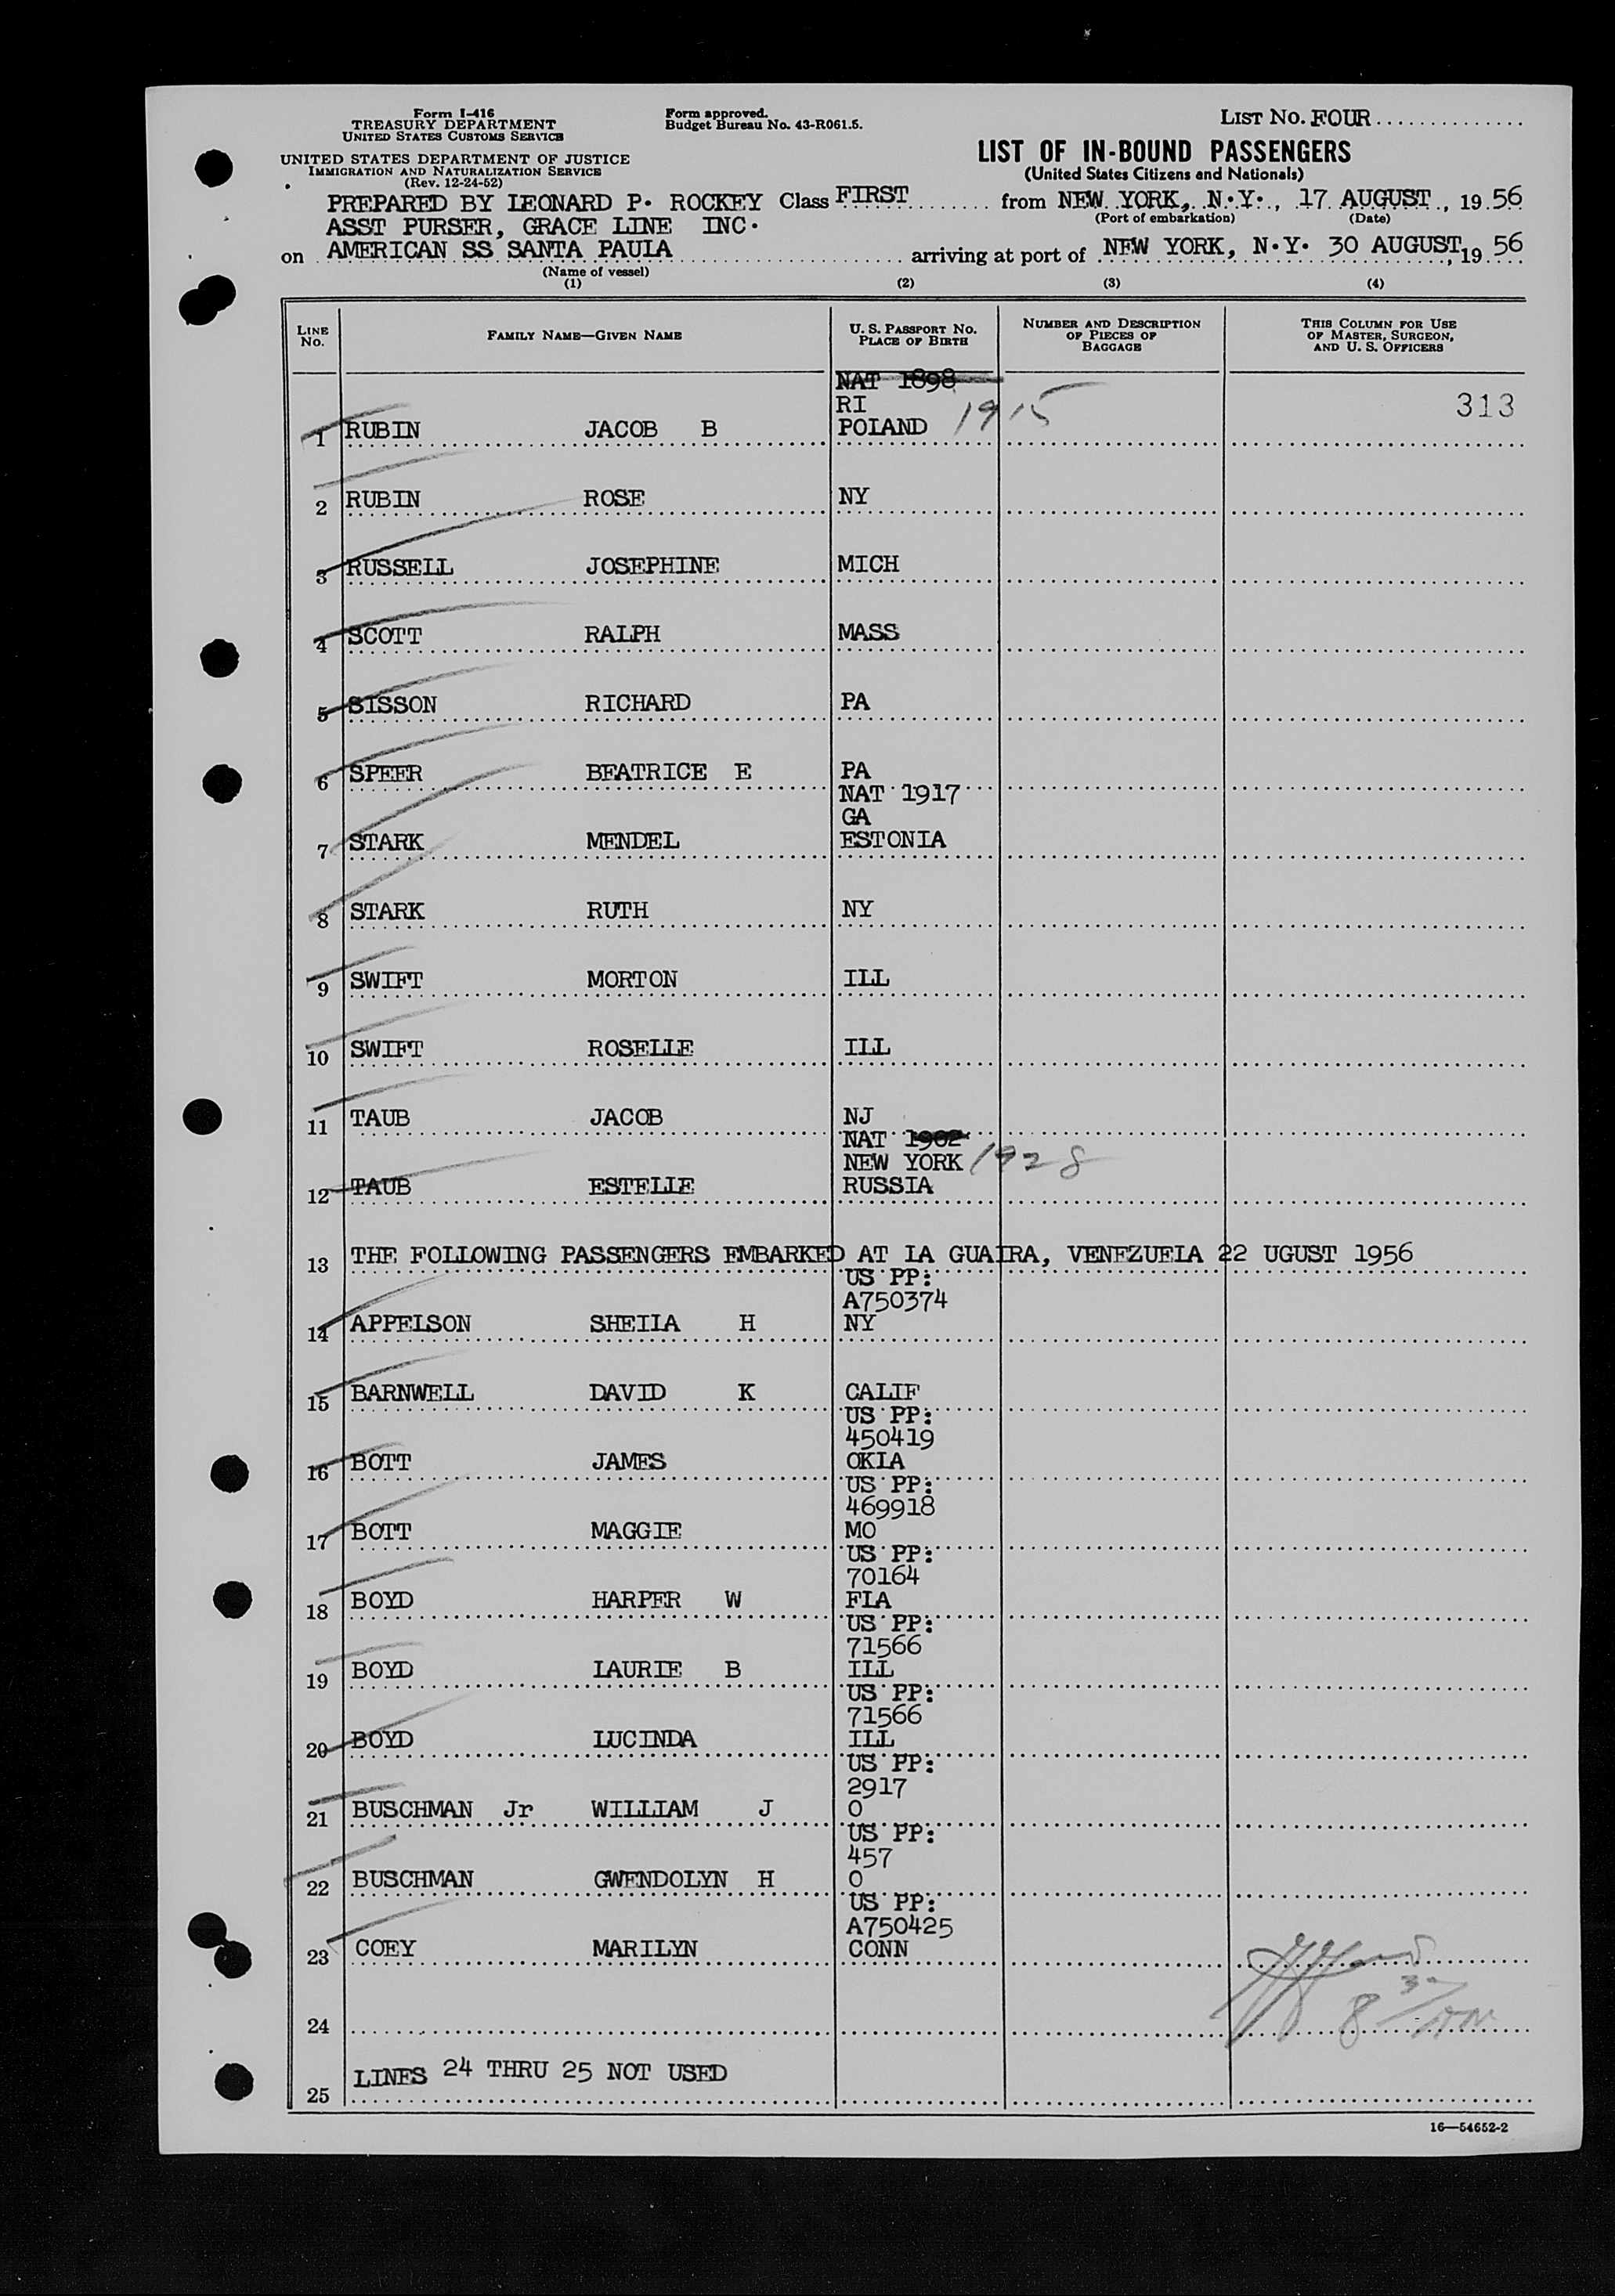 Form I-416
TREASURY DEPARTMENT
UNITED STATES CUSTOMS SERVICE
UNITED STATES DEPARTMENT OF JUSTICE
IMMIGRATION AND NATURALIZATION SERVICE
(Rev. 12-24-52)
Form approved.
Budget Bureau No. 43-R061.5.
LIST NO. FOUR
LIST OF IN-BOUND PASSENGERS
(United States Citizens and Nationals)
PREPARED BY LEONARD P. ROCKEY Class FIRST from NEW YORK, N.Y., 17 AUGUST, 19 56
(Port of embarkation) (Date)
ASST PURSER, GRACE LINE INC.
on AMERICAN SS SANTA PAULA arriving at port of NEW YORK, N.Y. 30 AUGUST, 19 56
(Name of vessel)
(1) (2) (3) (4)
LINE NO. FAMILY NAME—GIVEN NAME U. S. PASSPORT NO. PLACE OF BIRTH NUMBER AND DESCRIPTION OF PIECES OF BAGGAGE THIS COLUMN FOR USE OF MASTER, SURGEON, AND U. S. OFFICERS
NAT 1898
RI 1915 313
1 RUBIN JACOB B POLAND
2 RUBIN ROSE NY
3 RUSSELL JOSEPHINE MICH
4 SCOTT RALPH MASS
5 SISSON RICHARD PA
6 SPEER BEATRICE E PA
NAT 1917
GA
7 STARK MENDEL ESTONIA
8 STARK RUTH NY
9 SWIFT MORTON ILL
10 SWIFT ROSELLE ILL
11 TAUB JACOB NJ
NAT 1902
NEW YORK 1928
12 TAUB ESTELLE RUSSIA
13 THE FOLLOWING PASSENGERS EMBARKED AT LA GUAIRA, VENEZUELA 22 UGUST 1956
US PP:
A750374
14 APPELSON SHEILA H NY
15 BARNWELL DAVID K CALIF
US PP:
450419
16 BOTT JAMES OKLA
US PP:
469918
17 BOTT MAGGIE MO
US PP:
70164
18 BOYD HARPER W FLA
US PP:
71566
19 BOYD LAURIE B ILL
US PP:
71566
20 BOYD LUCINDA ILL
US PP:
2917
21 BUSCHMAN Jr WILLIAM J O
US PP:
457
22 BUSCHMAN GWENDOLYN H O
US PP:
A750425
23 COEY MARILYN CONN
24
8 30
25 LINES 24 THRU 25 NOT USED
16—54652-2